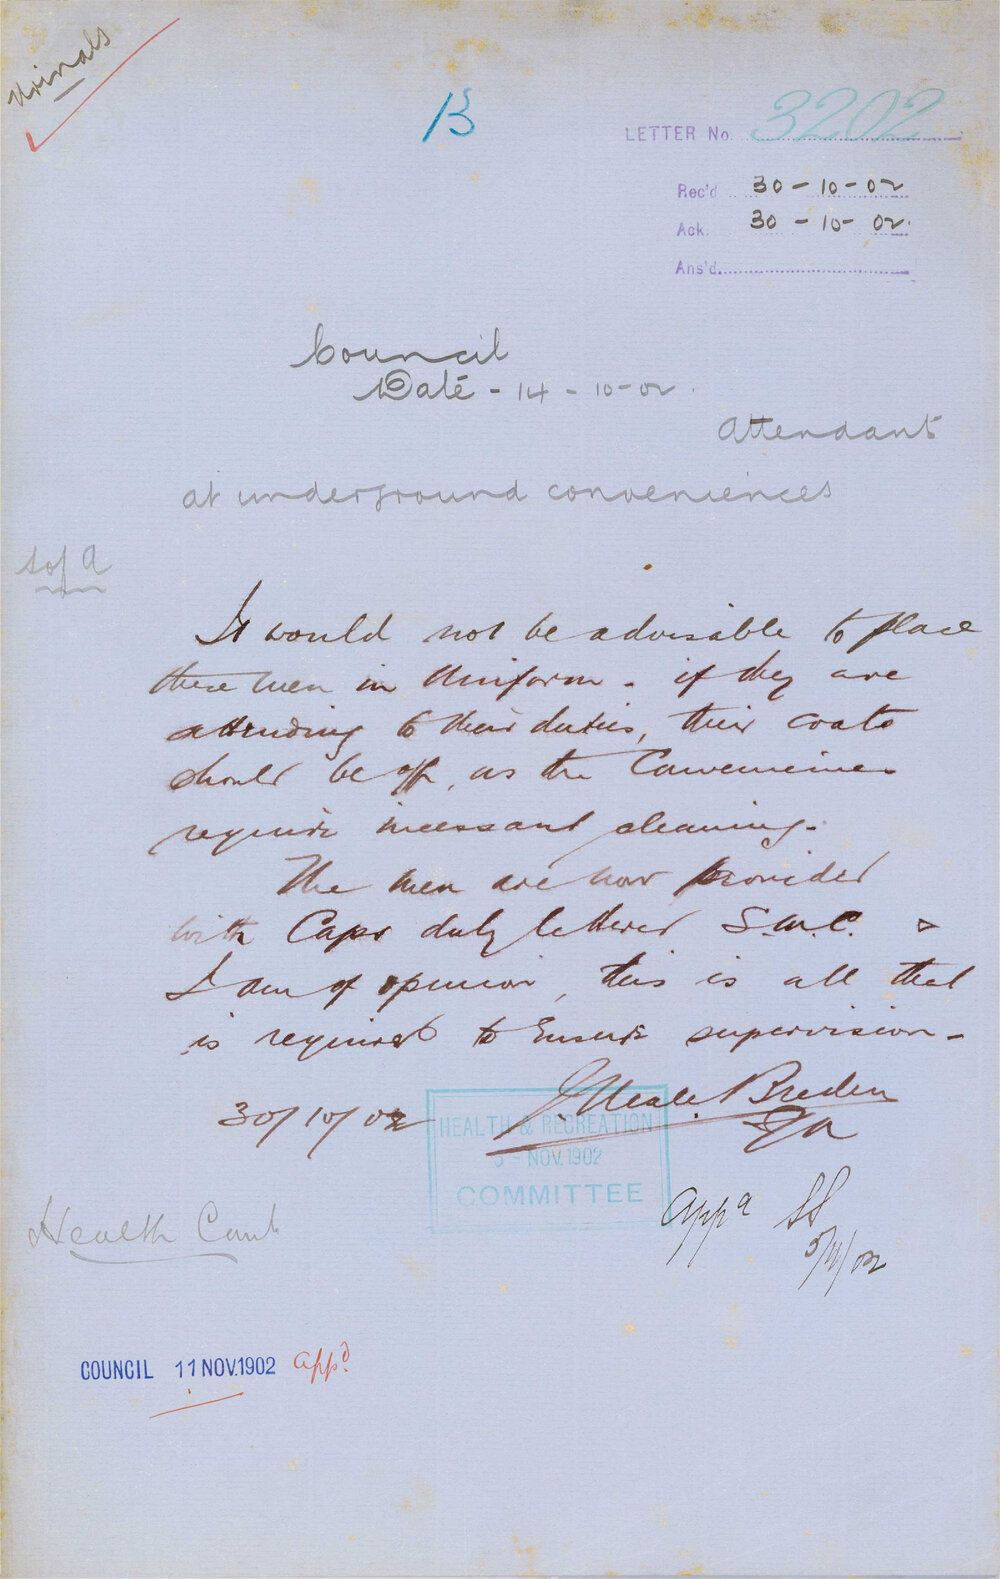 Urinals
B
LETTER No. 3202
Rec'd 30-10-02
Ack. 30-10-02.
Ans'd.
Council
Date - 14-10-02.
Attendant
at underground conveniences
It would not be advisable to place
these men in Uniform - if they are
attending to their duties, their coats
should be off, as the Conveniences
require incessant cleaning.
The men are now provided
with Caps duly lettered S.M.C. &
I am of opinion, this is all that
is required to Ensure supervision -
30/10/02
J. Neale. Breden
HEALTH & RECREATION
5 - NOV. 1902
COMMITTEE
Appd SS
5/11/02
Health Comt
COUNCIL 11 NOV. 1902 appd.